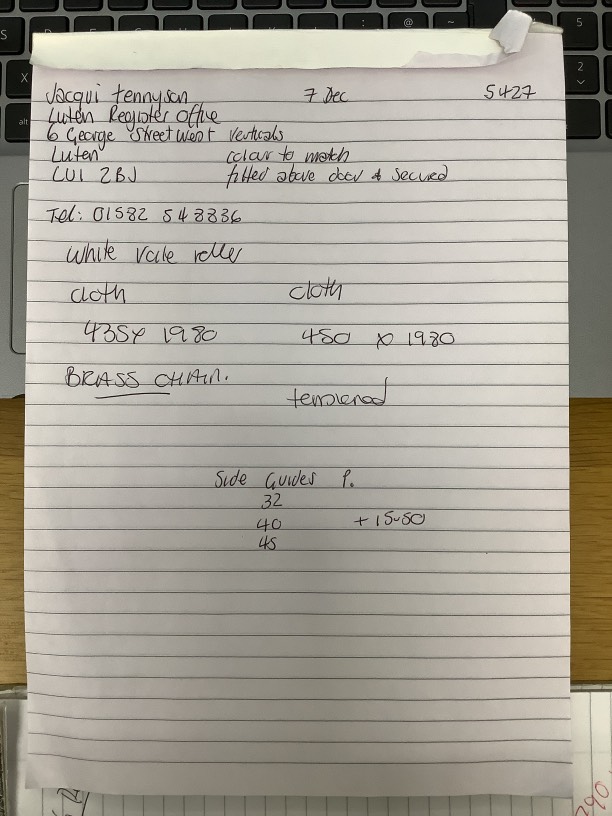 Jacqui Tennyson 7 Dec 5427
Luton Register Office
6 George Street West Verticals
Luton colour to match
LU1 2BJ fitted above door & secured
Tel: 01582 548836
White Vale roller
cloth cloth
435 x 1980 450 x 1980
BRASS CHAIN.
tensioned
Side Guides P.
32
40 + 15-50
45